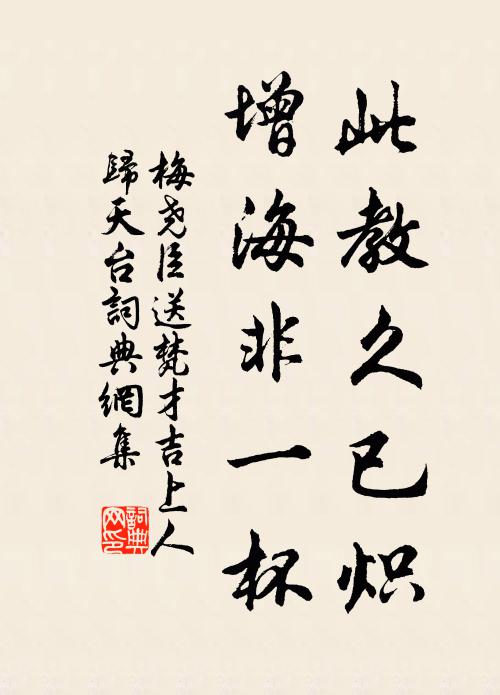 此教久已炽
增海非一杯
梅尧臣送梵才吉上人
歸天台詞典網集
詞典
网印